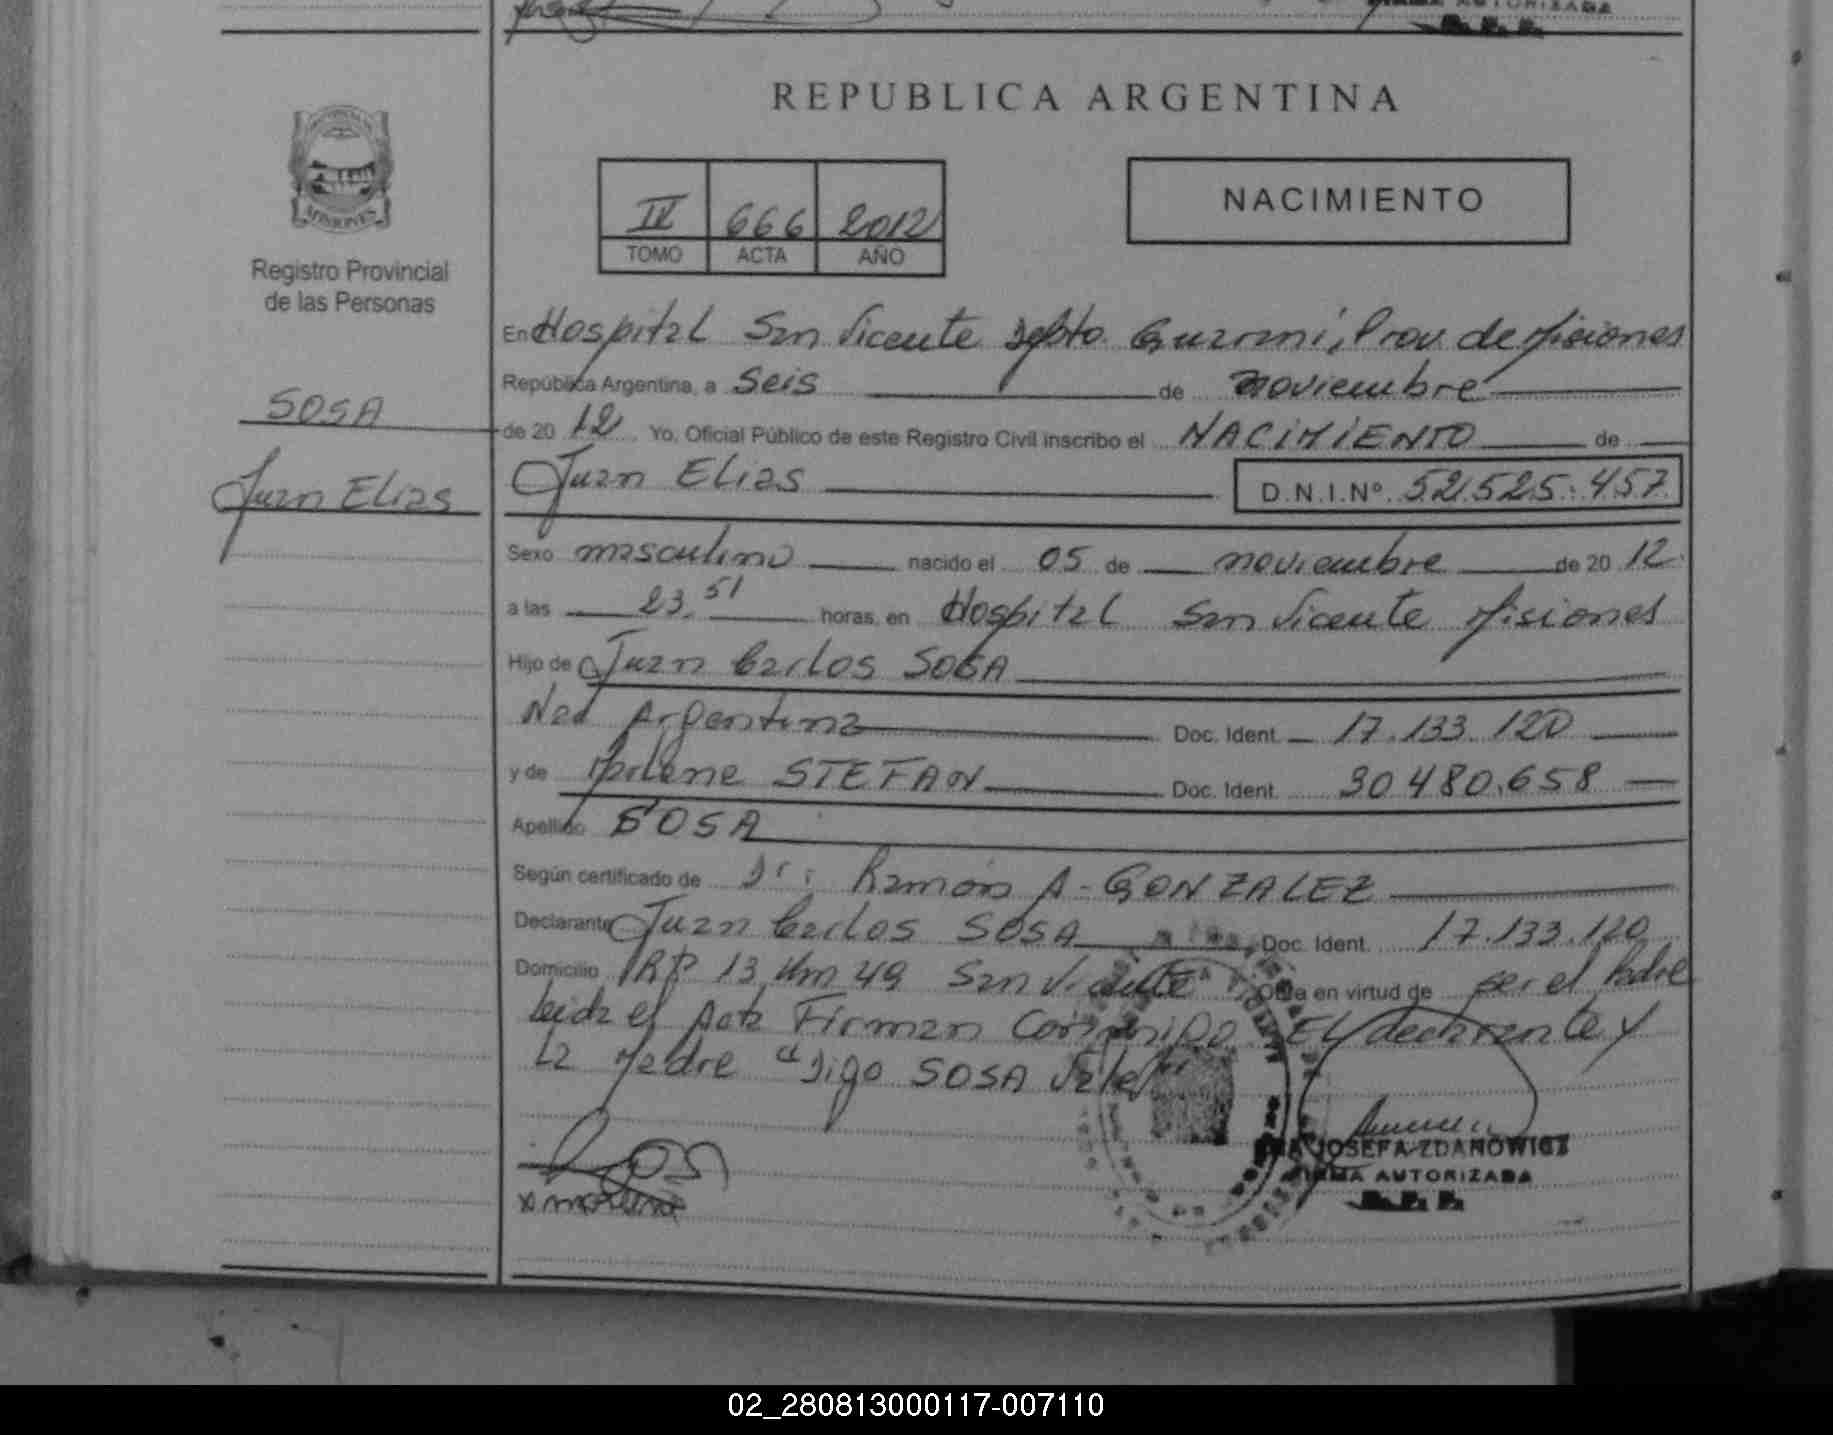 FIRMA AUTORIZADA
R.P.P.
REPUBLICA ARGENTINA
MISIONES
Registro Provincial
de las Personas
IV 666 2012
TOMO ACTA AÑO
NACIMIENTO
SOSA
Juan Elias
En Hospital San Vicente Dpto. Guaraní, Prov de Misiones
República Argentina, a seis de noviembre
de 20 12 Yo, Oficial Público de este Registro Civil inscribo el NACIMIENTO de
Juan Elias D.N.I.Nº 52.525.457
Sexo masculino nacido el 05 de noviembre de 20 12
a las 23.51 horas, en Hospital San Vicente Misiones
Hijo de Juan Carlos SOSA
Nad Argentina Doc. Ident. 17.133.120
y de Marlene STEFAN Doc. Ident. 30480.658
Apellido SOSA
Según certificado de Dr: Ramón A. GONZALEZ
Declarante Juan Carlos SOSA Doc. Ident. 17.133.120
Domicilio RP 13 Km 49 San Vicente Obra en virtud de ser el Padre
Leida el Acta Firman Conmigo El declarante y
La Madre "Digo SOSA Vale"
JOSEFA ZDANOWICZ
FIRMA AUTORIZADA
R.P.P.
02_280813000117-007110